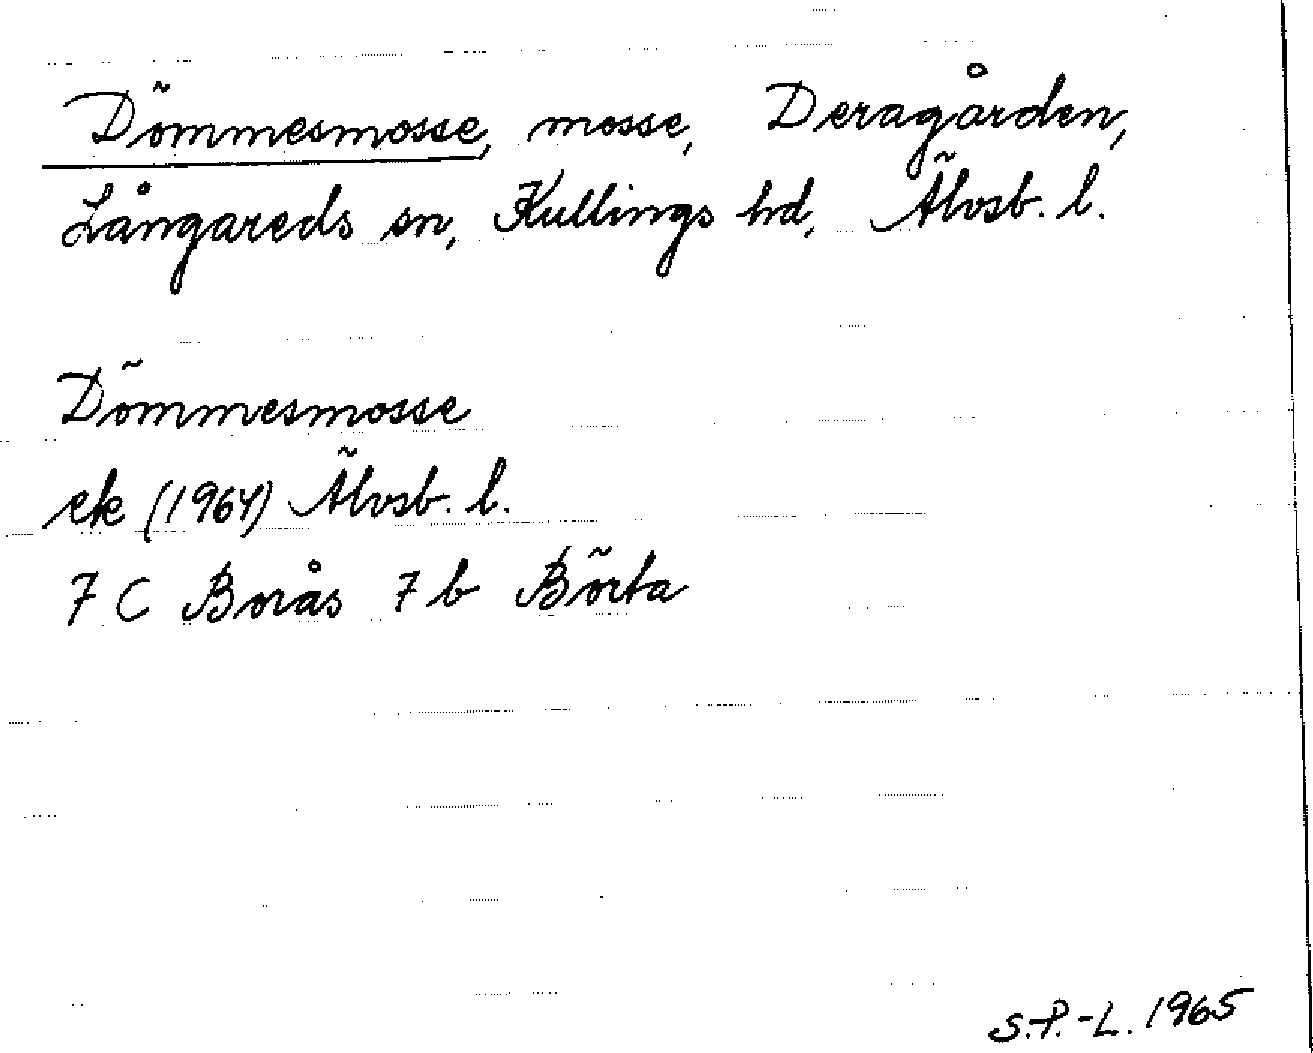 Dömmesmosse, mosse, Deragården,
Långareds sn, Kullings hd, Älvsb. l.
Dömmesmosse
ek (1964) Älvsb. l.
7 C Borås 7 b Börta
S.P.-L. 1965